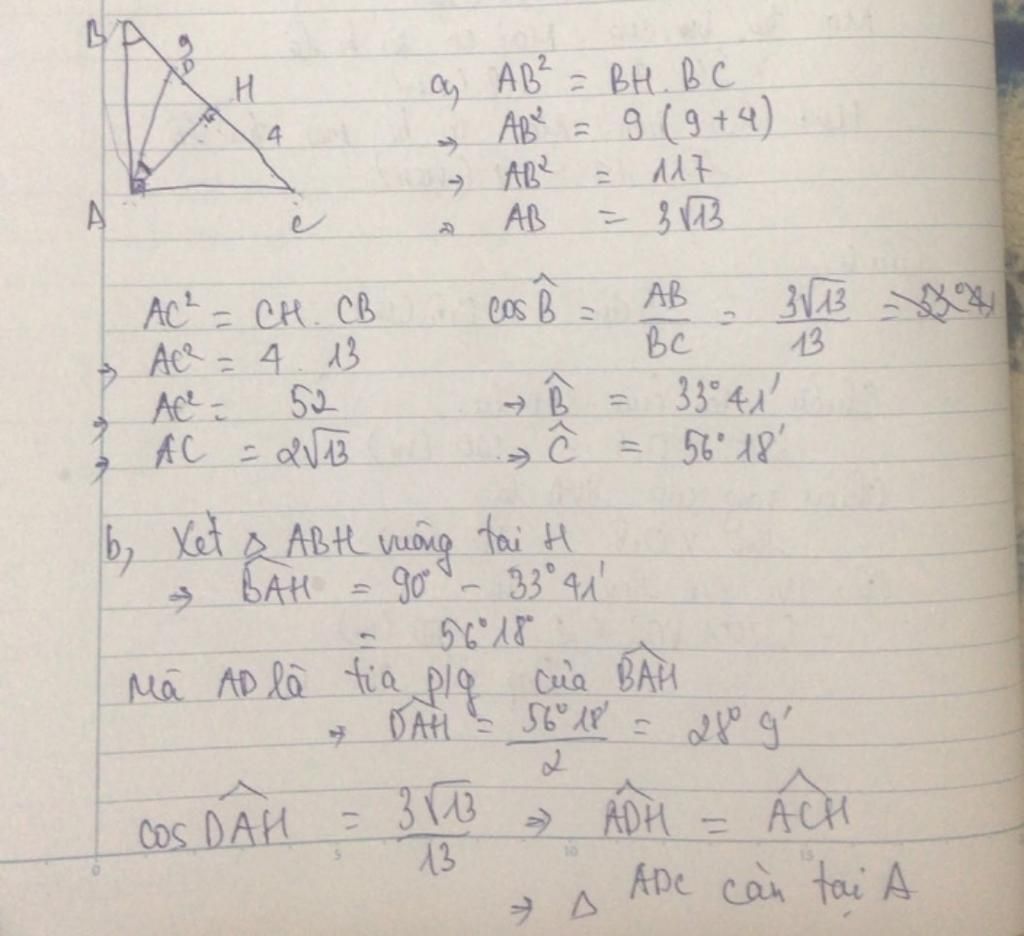 B
9
D
H
4
A
C
a, AB² = BH. BC
⇒ AB² = 9 (9+4)
⇒ AB² = 117
⇒ AB = 3√13
AC² = CH. CB
⇒ AC² = 4 . 13
⇒ AC² = 52
⇒ AC = 2√13
cos B̂ = AB/BC = 3√13/13 =
⇒ B̂ = 33°41'
⇒ Ĉ = 56°18'
b, Xét Δ ABH vuông tại H
⇒ \widehat{BAH} = 90° - 33°41'
= 56°18'
Mà AD là tia p/g của \widehat{BAH}
⇒ \widehat{DAH} = 56°18'/2 = 28° 9'
cos \widehat{DAH} = 3√13/13 ⇒ \widehat{ADH} = \widehat{ACH}
⇒ Δ ADC cân tại A
0 5 10 15